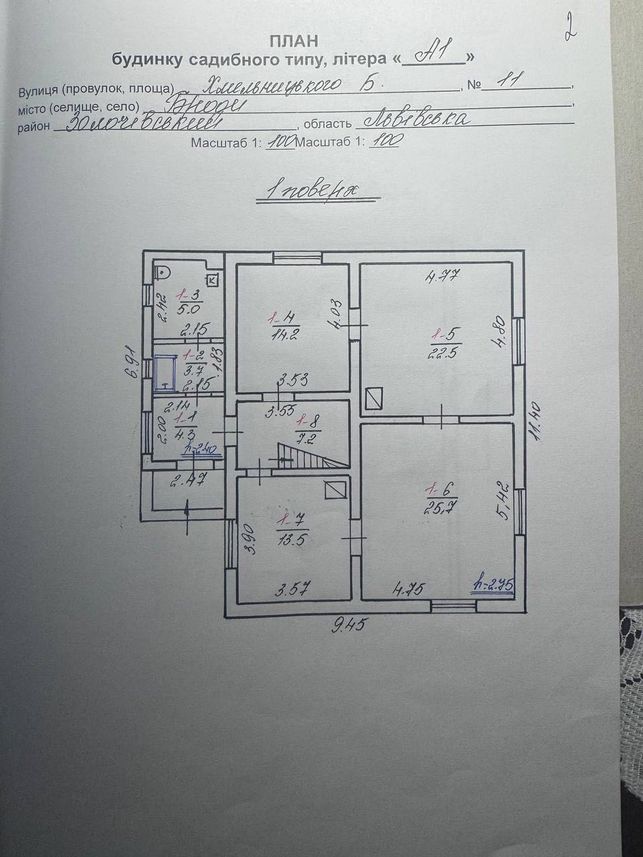 2
ПЛАН
будинку садибного типу, літера « А1 »
Вулиця (провулок, площа) Хмельницького Б. , № 11 ,
місто (селище, село) Броди ,
район Золочівський , область Львівська
Масштаб 1: 100 Масштаб 1: 100
1 поверх
4.77
2.42
1-3
5.0
2.15
1-4
14.2
4.03
1-5
22.5
4.80
6.91
1-2
3.7
1.83
2.15
3.53
2.14
2.00
1-1
4.3
h=2.40
3.55
1-8
7.2
11.40
2.47
1-6
25,7
5,42
3.90
1-7
13.5
3.57
4.75
h=2.75
9.45